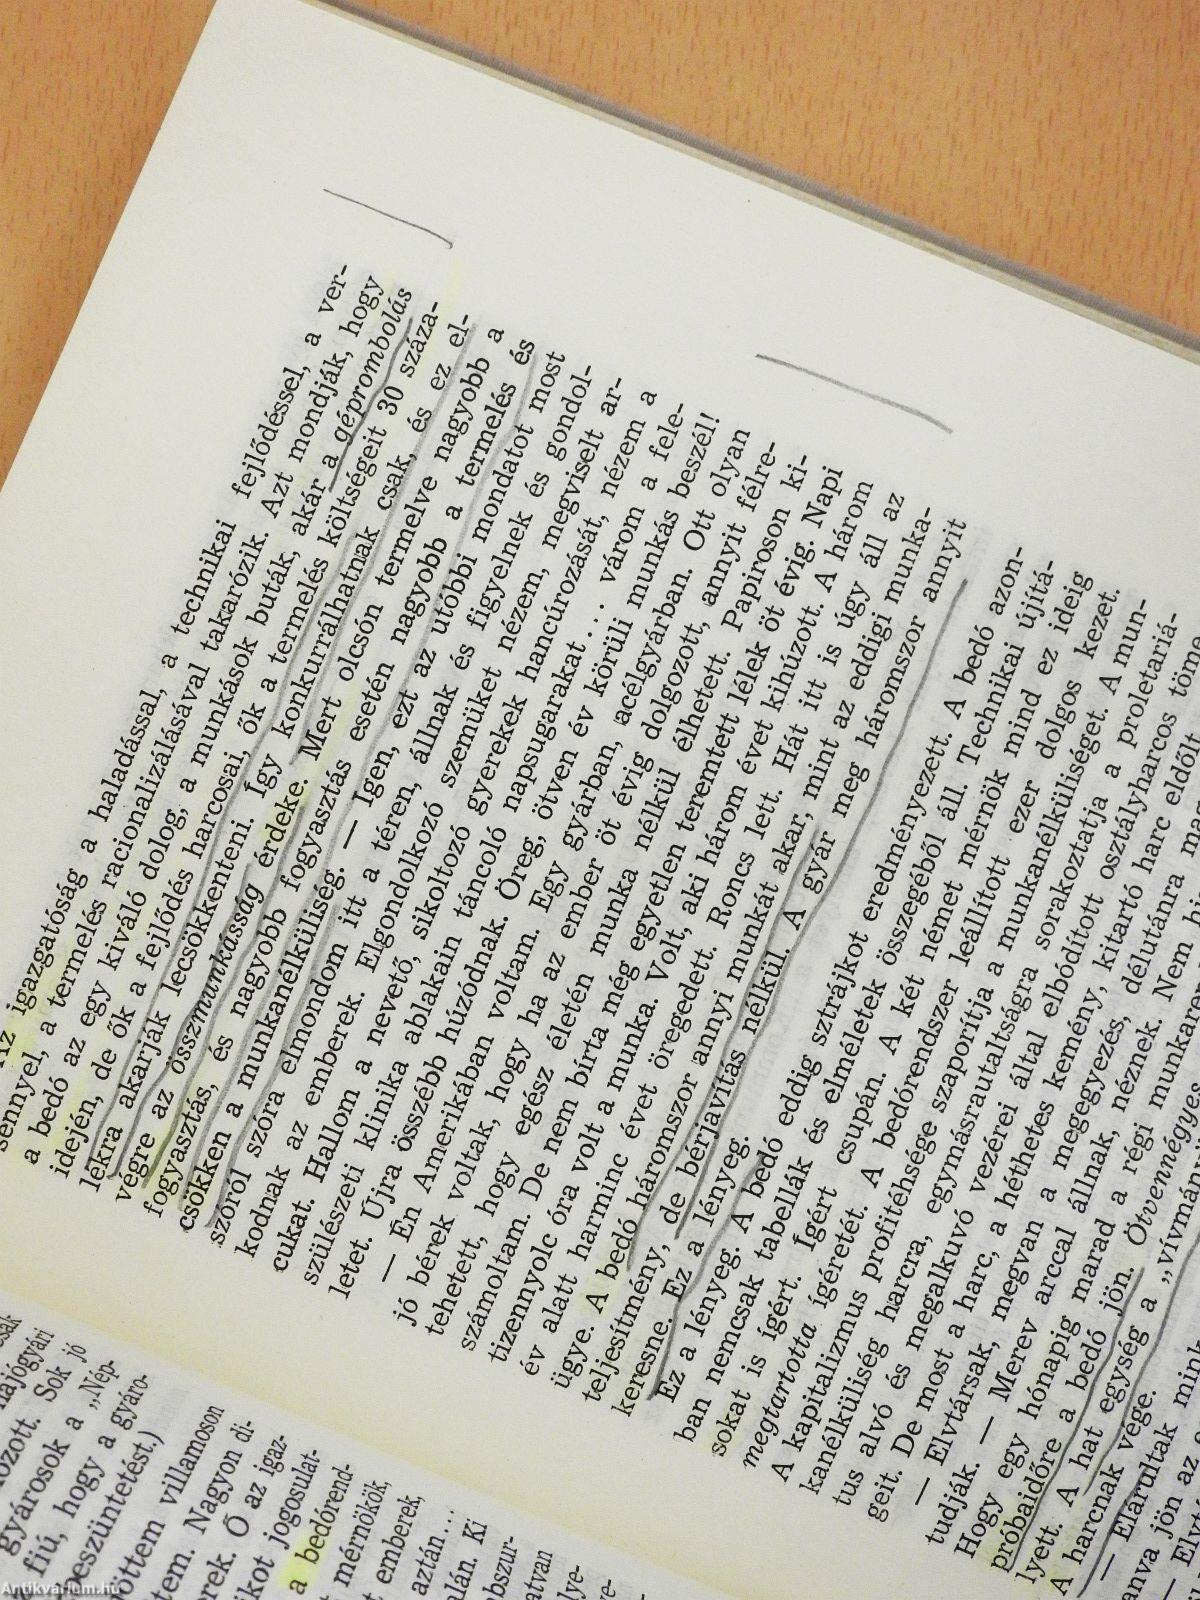 csak
hajógyári
kozott. Sok jó
gyárosok a „Nép-
fiú, hogy a gyáro-
beszüntetést.)
öttem villamoson
tem. Nagyon di-
erek. Ő az igaz-
ikot jogosulat-
a bedórend-
mérnökök,
t emberek,
aztán...
alán. Ki
bszur-
atvan
lye-
Az igazgatóság a haladással, a technikai fejlődéssel, a ver-
sennyel, a termelés racionalizálásával takarózik. Azt mondják, hogy
a bedó az egy kiváló dolog, a munkások buták, akár a géprombolás
idején, de ők a fejlődés harcosai, ők a termelés költségeit 30 száza-
lékra akarják lecsökkenteni. Így konkurrálhatnak csak, és ez el-
végre az összmunkásság érdeke. Mert olcsón termelve nagyobb a
fogyasztás, és nagyobb fogyasztás esetén nagyobb a termelés és
csökken a munkanélküliség. — Igen, ezt az utóbbi mondatot most
szóról szóra elmondom itt a téren, állnak és figyelnek és gondol-
kodnak az emberek. Elgondolkozó szemüket nézem, megviselt ar-
cukat. Hallom a nevető, sikoltozó gyerekek hancúrozását, nézem a
szülészeti klinika ablakain táncoló napsugarakat... várom a fele-
letet. Újra összébb húzódnak. Öreg, ötven év körüli munkás beszél!
— Én Amerikában voltam. Egy gyárban, acélgyárban. Ott olyan
jó bérek voltak, hogy ha az ember öt évig dolgozott, annyit félre-
tehetett, hogy egész életén munka nélkül élhetett. Papiroson ki-
számoltam. De nem bírta még egyetlen teremtett lélek öt évig. Napi
tizennyolc óra volt a munka. Volt, aki három évet kihúzott. A három
év alatt harminc évet öregedett. Roncs lett. Hát itt is úgy áll az
ügye. A bedó háromszor annyi munkát akar, mint az eddigi munka-
teljesítmény, de bérjavítás nélkül. A gyár meg háromszor annyit
keresne. Ez a lényeg.
Ez a lényeg. A bedó eddig sztrájkot eredményezett. A bedó azon-
ban nemcsak tabellák és elméletek összegéből áll. Technikai újítá-
sokat is ígért. Ígért csupán. A két német mérnök mind ez ideig
megtartotta ígéretét. A bedórendszer leállított ezer dolgos kezet.
A kapitalizmus profitéhsége szaporítja a munkanélküliséget. A mun-
kanélküliség harcra, egymásrautaltságra sorakoztatja a proletariá-
tus alvó és megalkuvó vezérei által elbódított osztályharcos töme
geit. De most a harc, a héthetes kemény, kitartó harc eldőlt
— Elvtársak, megvan a megegyezés, délutánra ma
tudják. — Merev arccal állnak, néznek. Nem hi
Hogy egy hónapig marad a régi munkaren
próbaidőre a bedó jön. Ötvennégyes
lyett. A hat egység a „vívmán
A harcnak vége.
— Elárultak mink
anva jön az e
— Elvt